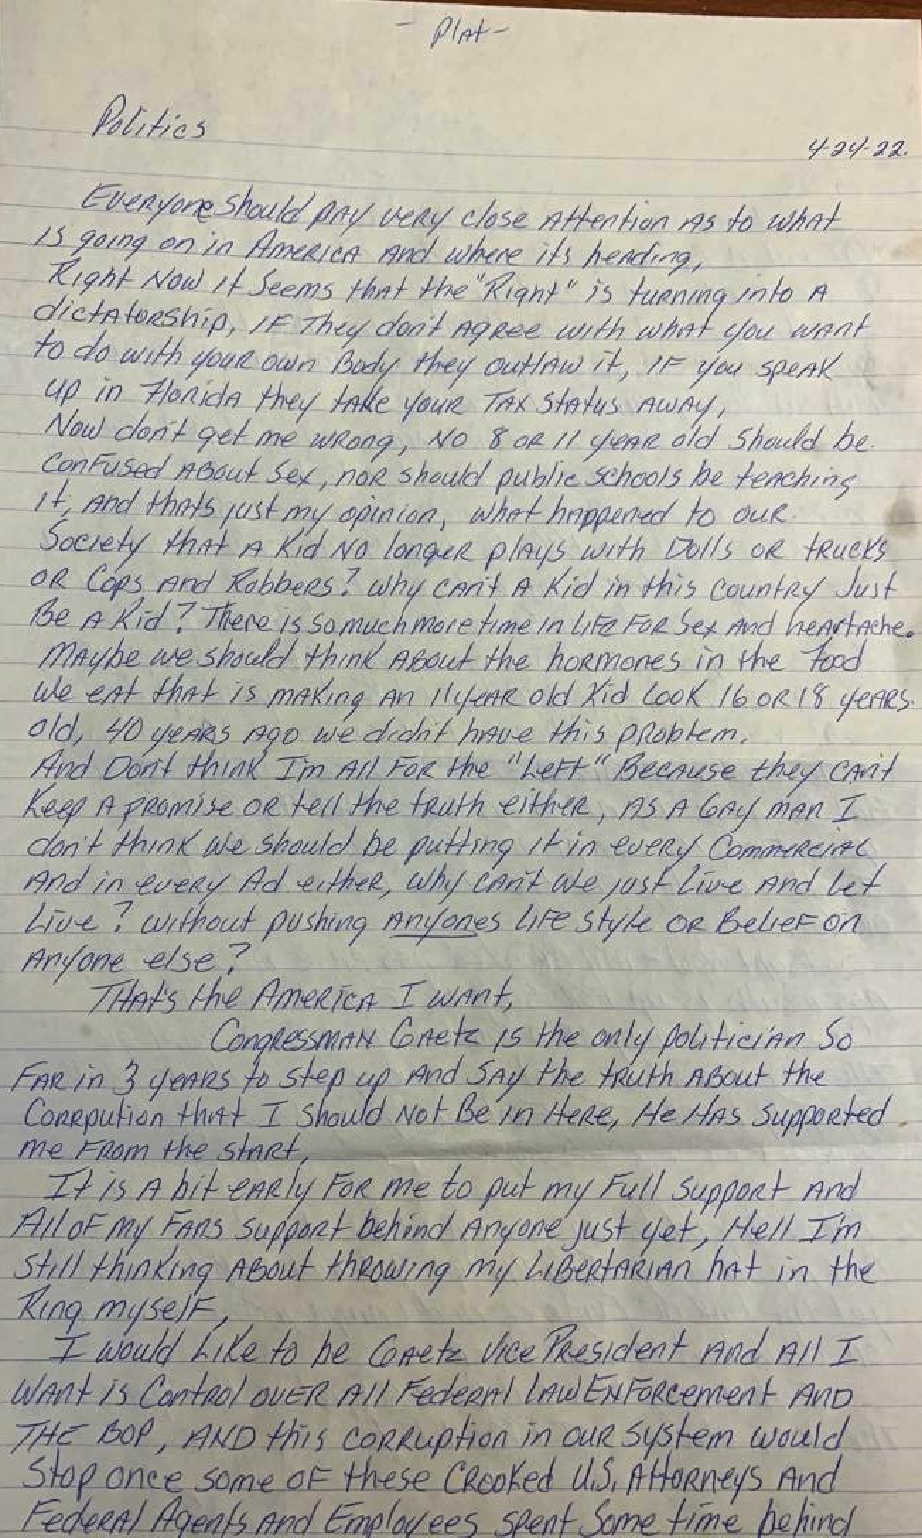 - Plat -
Politics
4-24-22.
Everyone should pay very close Attention As to what
is going on in America And where its heading,
Right Now it Seems that the "Right" is turning into A
dictatorship, IF They don't Agree with what you want
to do with your own Body they outlaw it, IF you speak
up in Florida they take your Tax Status Away,
Now don't get me wrong, No 8 or 11 year old should be
confused About Sex, nor should public schools be teaching
it, And thats just my opinion, what happened to our
Society that A Kid No longer plays with Dolls or trucks
or Cops And Robbers? Why can't A Kid in this country Just
Be A Kid? There is so much more time in Life For Sex And heartache.
Maybe we should think About the hormones in the food
we eat that is making An 11 year old Kid Look 16 or 18 years
old, 40 years Ago we didn't have this problem.
And Don't think I'm All For the "Left" Because they can't
Keep A promise or tell the truth either, As A Gay man I
don't think we should be putting it in every Commercial
And in every Ad either, Why can't we just Live And Let
Live? without pushing Anyones Life Style or Belief on
Anyone else?
That's the America I want,
Congressman Gaetz is the only politician So
Far in 3 years to step up And Say the truth About the
Corrpution that I Should Not Be in Here, He Has Supported
me From the start,
It is A bit early For me to put my Full support And
All of my Fans support behind Anyone just yet, Hell I'm
Still thinking About throwing my Libertarian hat in the
Ring myself,
I would Like to be Gaetz Vice President And All I
want is Control over All Federal Law Enforcement And
THE BOP, And this corruption in our system would
Stop once some of these Crooked U.S. Attorneys And
Federal Agents And Employees spent Some time behind